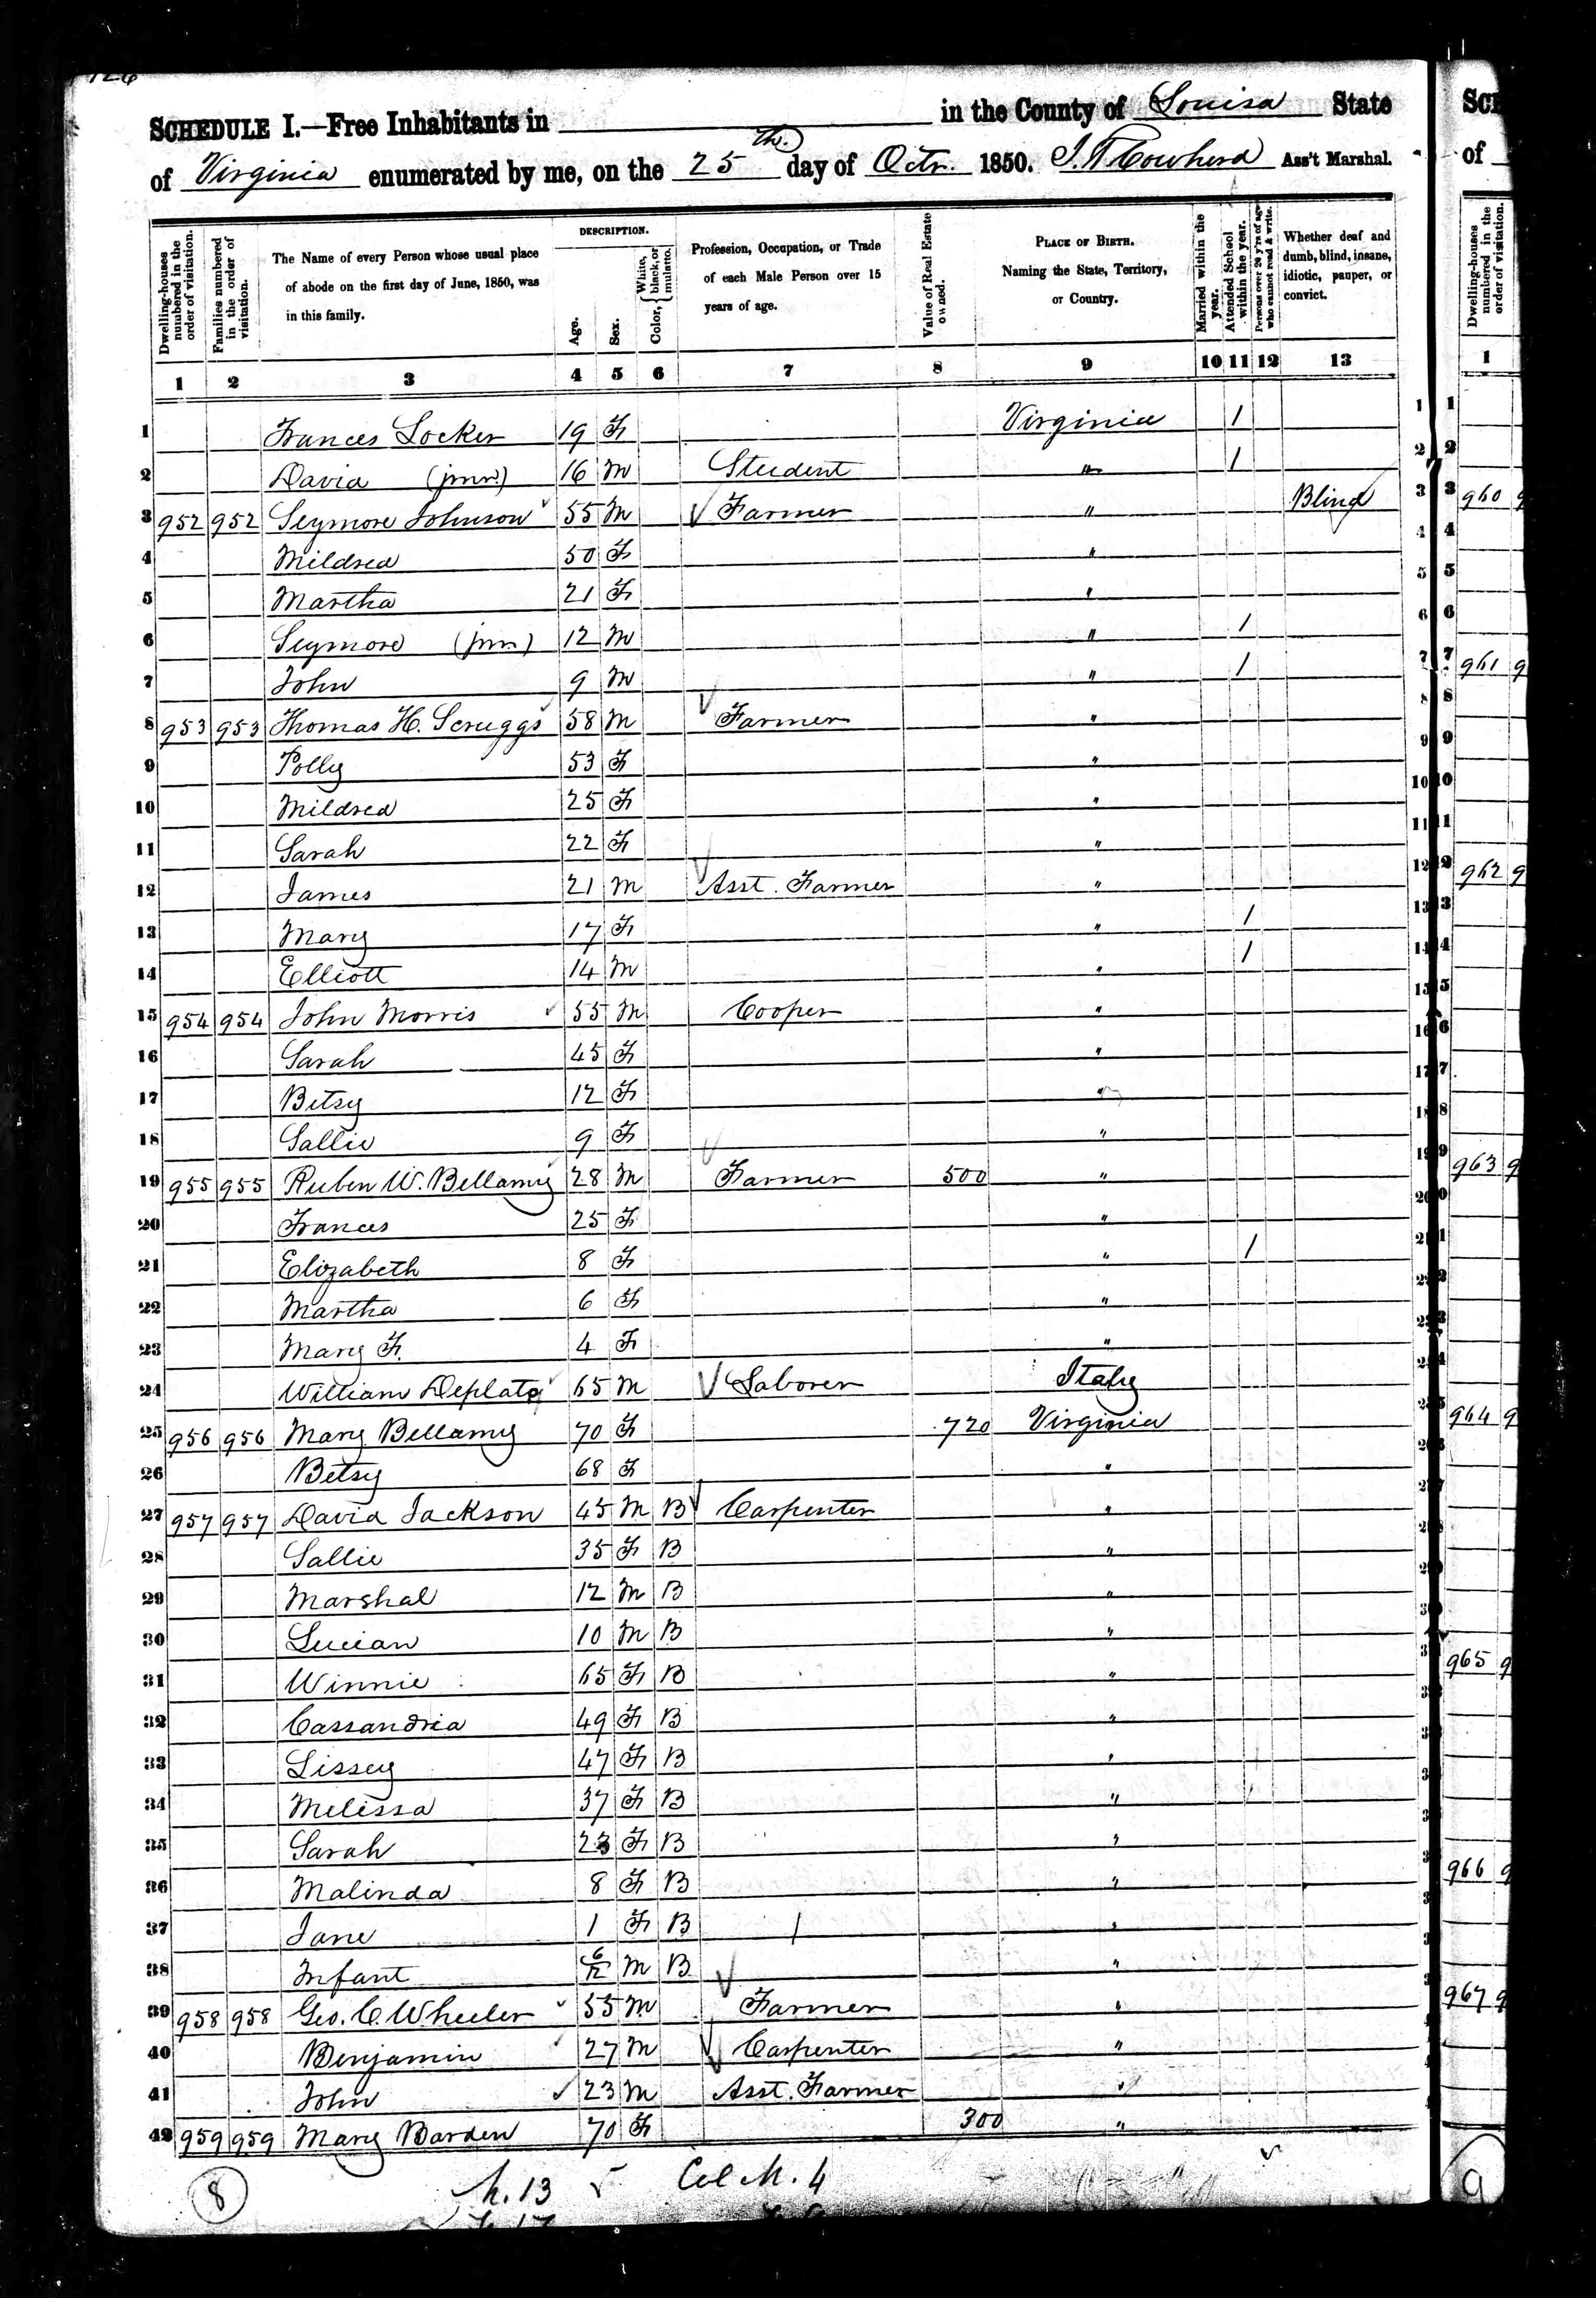 SCHEDULE I.—Free Inhabitants in in the County of Louisa State
of Virginia enumerated by me, on the 25th. day of Octr. 1850. J. T. Cowherd Ass't Marshal.
Dwelling-houses numbered in the order of visitation.
Families numbered in the order of visitation.
The Name of every Person whose usual place of abode on the first day of June, 1850, was in this family.
DESCRIPTION.
Age.
Sex.
Color, { White, black, or mulatto.
Profession, Occupation, or Trade of each Male Person over 15 years of age.
Value of Real Estate owned.
PLACE OF BIRTH. Naming the State, Territory, or Country.
Married within the year.
Attended School within the year.
Persons over 20 y'rs of age who cannot read & write.
Whether deaf and dumb, blind, insane, idiotic, pauper, or convict.
1 2 3 4 5 6 7 8 9 10 11 12 13
1 Frances Locker 19 F Virginia 1 1
2 David (junr.) 16 M Student " 1 2
3 952 952 Seymore Johnson 55 M Farmer " Blind 3
4 Mildred 50 F " 4
5 Martha 21 F " 5
6 Seymore (jnr) 12 M " 1 6
7 John 9 M " 1 7
8 953 953 Thomas H. Scruggs 58 M Farmer " 8
9 Polly 53 F " 9
10 Mildred 25 F " 10
11 Sarah 22 F " 11
12 James 21 M Asst. Farmer " 12
13 Mary 17 F " 1 13
14 Elliott 14 M " 1 14
15 954 954 John Morris 55 M Cooper " 15
16 Sarah 45 F " 16
17 Betsy 12 F " 17
18 Sallie 9 F " 18
19 955 955 Ruben W. Bellamy 28 M Farmer 500 " 19
20 Frances 25 F "
21 Elizabeth 8 F " 1
22 Martha 6 F "
23 Mary F. 4 F "
24 William 65 M Laborer Italy
25 956 956 Mary Bellamy 70 F 720 Virginia
26 Betsy 68 F "
27 957 957 David Jackson 45 M B Carpenter "
28 Sallie 35 F B "
29 Marshal 12 M B "
30 Lucian 10 M B "
31 Winnie 65 F B "
32 Cassandria 49 F B "
33 Lissey 47 F B "
34 Melissa 37 F B "
35 Sarah 23 F B "
36 Malinda 8 F B "
37 Jane 1 F B 1 "
38 Infant 6/12 M B "
39 958 958 Geo. C. Wheeler 55 M Farmer "
40 Benjamin 27 M Carpenter "
41 John 23 M Asst. Farmer "
42 959 959 Mary Barden 70 F 300 "
8 M. 13 Col M. 4
of
Dwelling-houses numbered in the order of visitation.
1
1
2
3 960
4
5
6
7 961
8
9
10
11
12 962
963
964
965
966
967
9